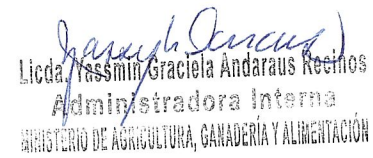 Licda. Yassmin Graciela Andaraus Recinos
Administradora Interna
MINISTERIO DE AGRICULTURA, GANADERÍA Y ALIMENTACIÓN